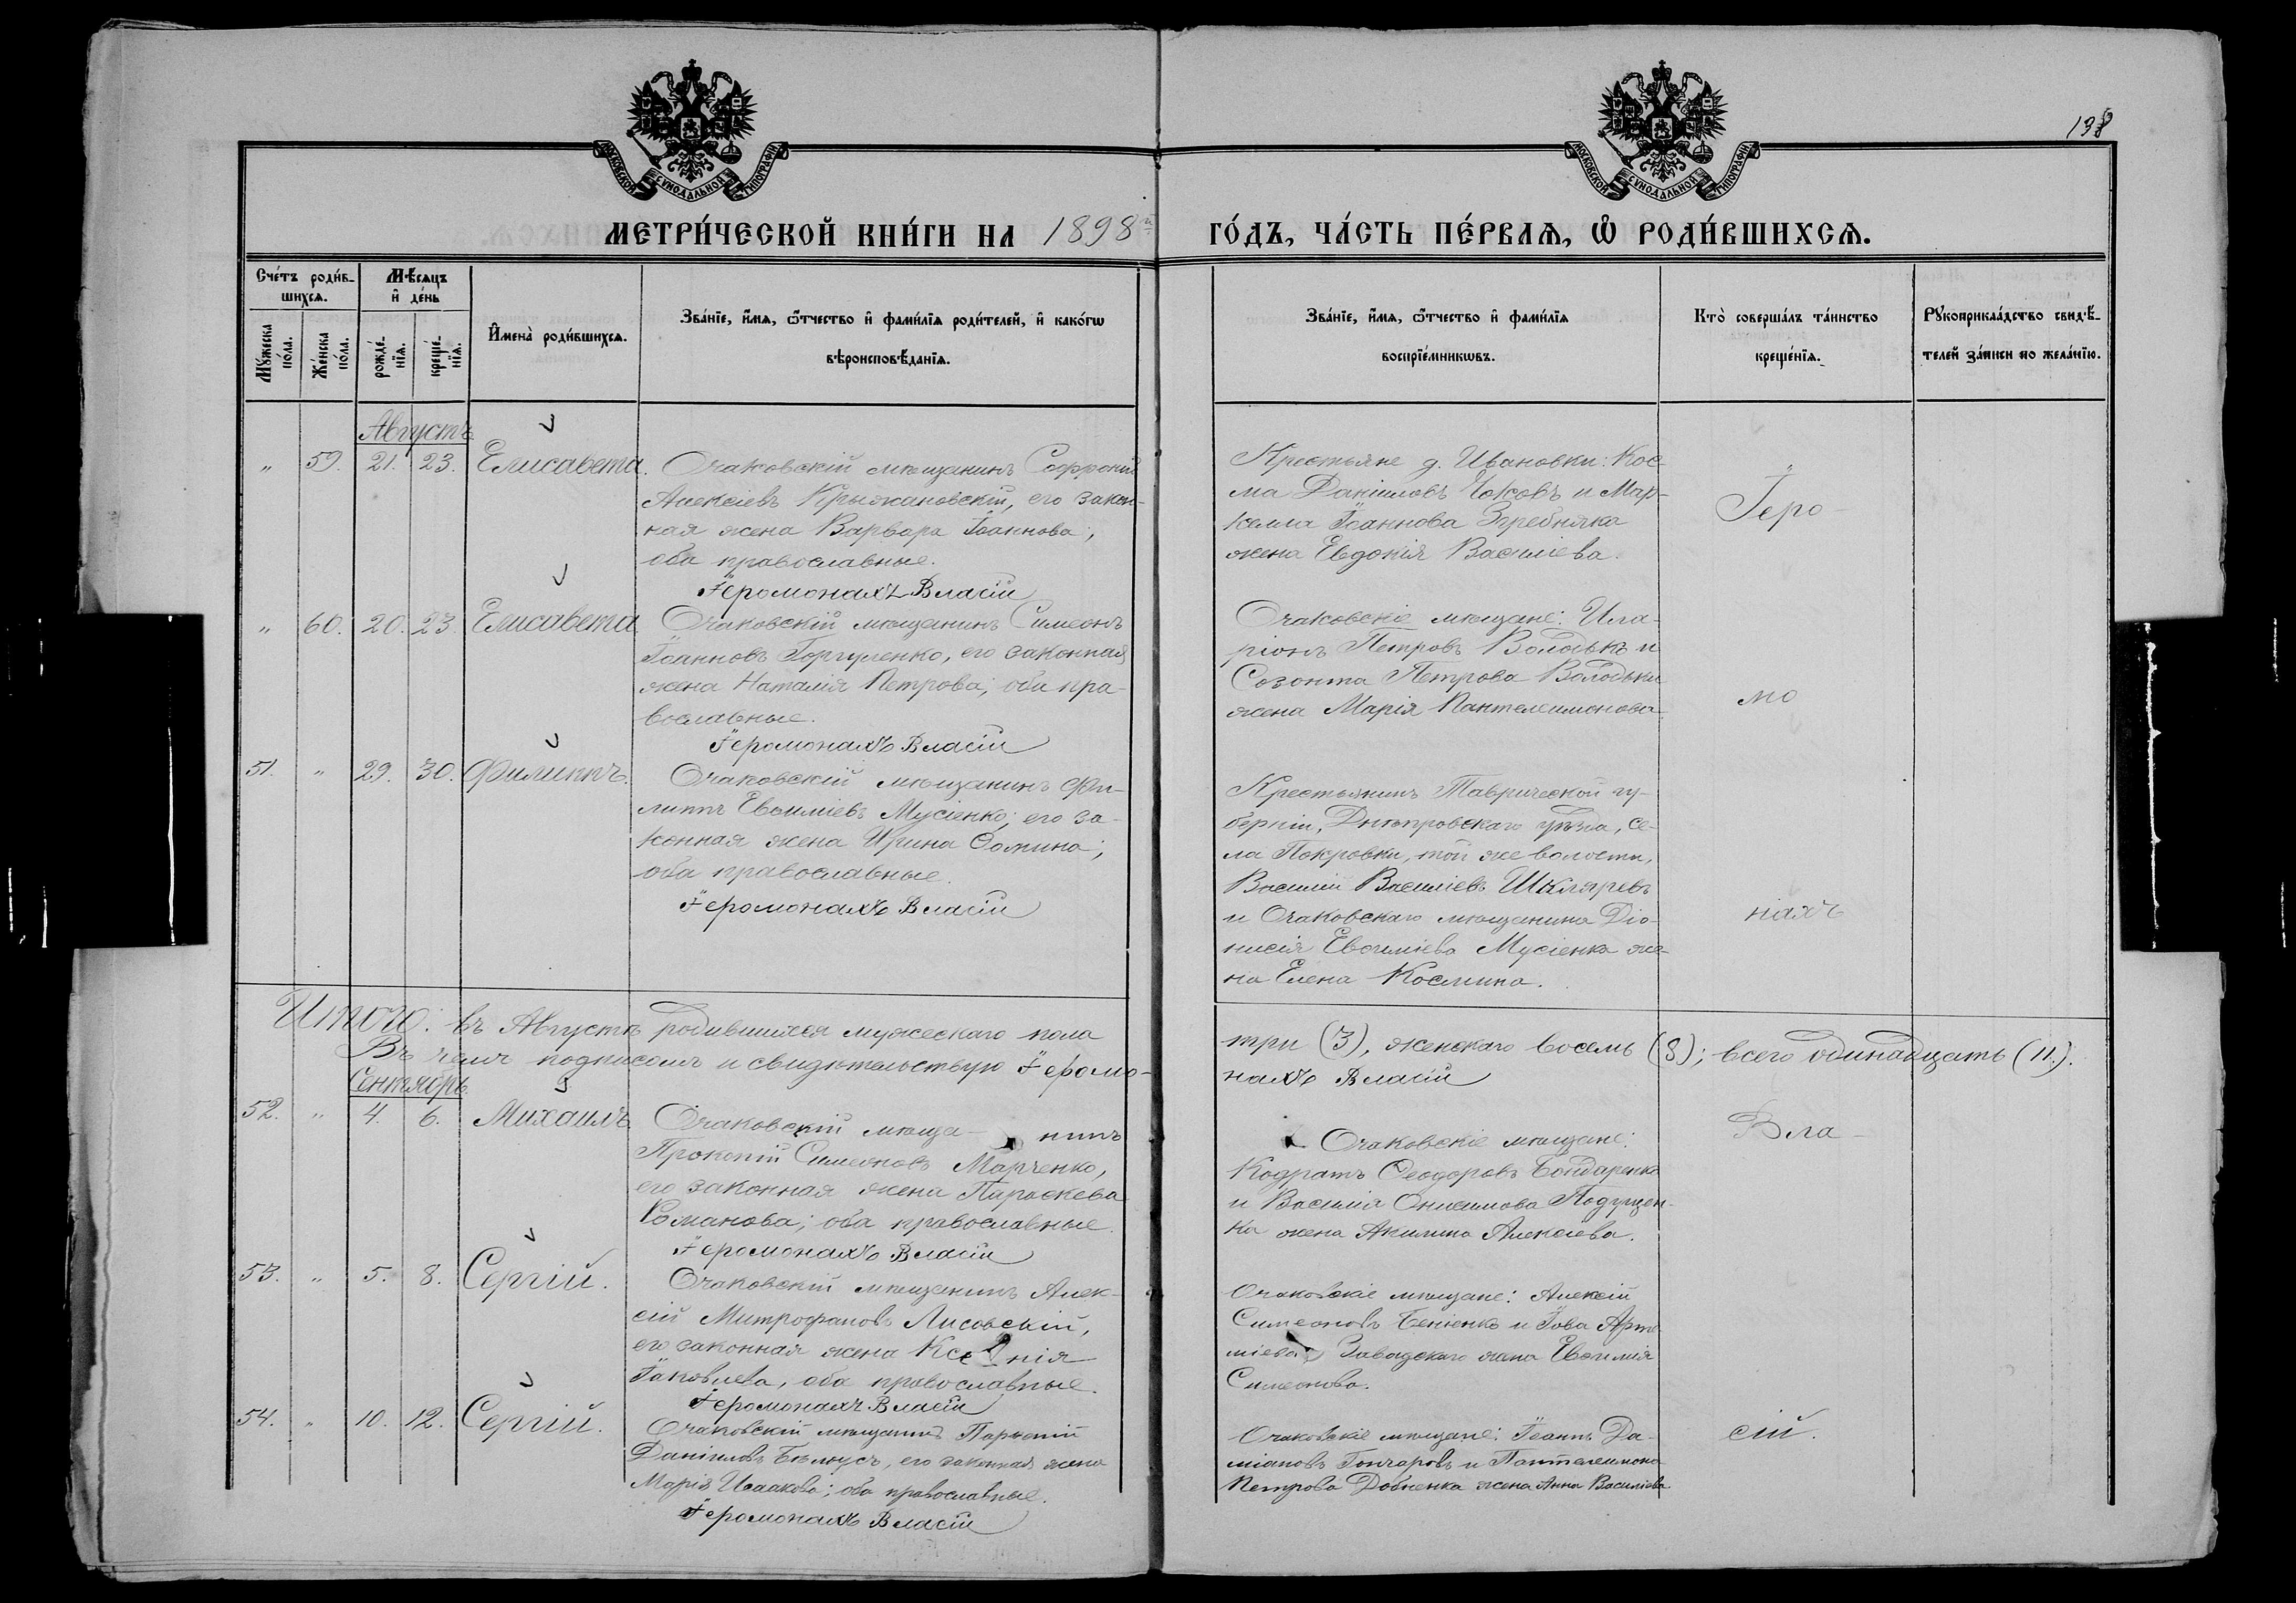 138
МОСКОВСКОЙ СУНОДАЛЬНОЙ ТИПОГРАФІИ
МОСКОВСКОЙ СУНОДАЛЬНОЙ ТИПОГРАФІИ
МЕТРИ́ЧЕСКОЙ КНИ́ГИ НА 1898й
ГО́ДЪ, ЧА́СТЬ ПЕ́РВАѦ, Ѡ РОДИ́ВШИХСѦ.
Сче́тъ роди́вшихсѧ.
Мꙋжеска по́ла.
Же́нска по́ла.
Мѣсѧцъ и҆ де́нь
рожде́нїѧ.
креще́нїѧ.
И҆мена̀ роди́вшихсѧ.
Зва́нїе, и҆́мѧ, ѻ҆́тчество и҆ фами́лїѧ роди́телей, и҆ како́гѡ
вѣроисповѣ́данїѧ.
Зва́нїе, и҆́мѧ, ѻ҆́тчество и҆ фами́лїѧ
воспрїе́мникѡвъ.
Кто̀ соверша́лъ та́инство
креще́нїѧ.
Рꙋкоприкла́дство свидѣ́-
телей за́писи по жела́нїю.
Августъ
" 59. 21. 23. Елисавета.
Очаковскій мѣщанинъ Софроній
Алексіевъ Крыжановскій, его закон-
ная жена Варвара Іоаннова;
оба православные.
Іеромонахъ Власій
Крестьяне д. Ивановки: Кос-
ма Даніиловъ Чижовъ и Мар-
келла Іоаннова Згребняка
жена Евдокія Василіева.
Іеро-
" 60. 20. 23. Елисавета.
Очаковскій мѣщанинъ Симеонъ
Іоанновъ Горгуленко, его законная
жена Наталія Петрова; оба пра-
вославные.
Іеромонахъ Власій
Очаковскіе мѣщане: Ила-
ріонъ Петровъ Володька и
Созонта Петрова Володьки
жена Марія Пантелеимонова.
мо
51. " 29. 30. Филиппъ.
Очаковскій мѣщанинъ Фи-
липпъ Евѳиміевъ Мусіенко; его за-
конная жена Ирина Ѳомина;
оба православные.
Іеромонахъ Власій
Крестьянинъ Таврической гу-
берніи, Днѣпровскаго уѣзда, се-
ла Покровки, той же волости,
Василій Василіевъ Шкляревъ
и Очаковскаго мѣщанина Діо-
нисія Евѳиміева Мусіенка же-
на Елена Космина.
нахъ
Итого: въ Августѣ родившихся мужескаго пола
три (3), женскаго восемь (8); всего одинадцать (11).
Въ чемъ подписомъ и свидѣтельствую Іеромо-
нахъ Власій
Сентябрь.
52. " 4. 6. Михаилъ.
Очаковскій мѣща- нинъ
Прокопій Симеоновъ Марченко,
его законная жена Параскева
Романова; оба православные.
Іеромонахъ Власій
Очаковскіе мѣщане:
Кодратъ Ѳеодоровъ Бондаренко
и Василія Онисимова Подущен-
ка жена Акилина Алексіева.
Вла-
53. " 5. 8. Сергій.
Очаковскій мѣщанинъ Алек-
сій Митрофановъ Лисовскій,
его законная жена Ксенія
Іаковлева, оба православные.
Іеромонахъ Власій
Очаковскіе мѣщане: Алексій
Симеоновъ и Іова Арте-
міева Завадскаго жена Евѳимія
Симеонова.
54. " 10. 12. Сергій.
Очаковскій мѣщанинъ Парѳеній
Даніиловъ Бѣлоусъ, его законная жена
Марія Исаакова; оба православные.
Іеромонахъ Власій
Очаковскіе мѣщане: Іоаннъ Да-
міановъ Гончаровъ и Пантелеимона
Петрова жена Анна Василіева
сій.